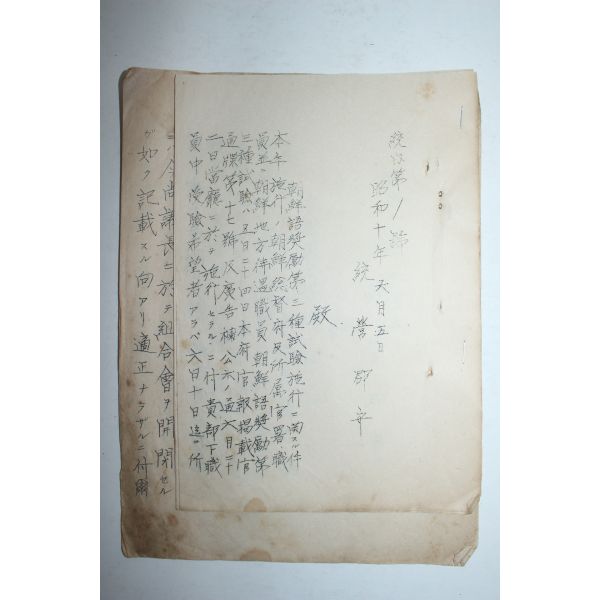 統 第1號
昭和十年 六月五日
統營郡守
殿
朝鮮語奬勵第三種試驗施行ニ関スル件
本年施行ノ朝鮮総督府及所属官署ノ職
員並ニ朝鮮地方待遇職員朝鮮語奬勵第
三種試驗ハ五月二十四日本府官報掲載官
通牒第十七號及廣告欄公示ノ通六月二十
二日當廳ニ於テ施行セラルルニ付貴部下職
員中受驗希望者アラバ六月十日迄ニ所
ニハ今尚議長ニ於テ組合會ヲ開閉セル
ガ如ク記載スル向アリ適正ナラザルニ付爾